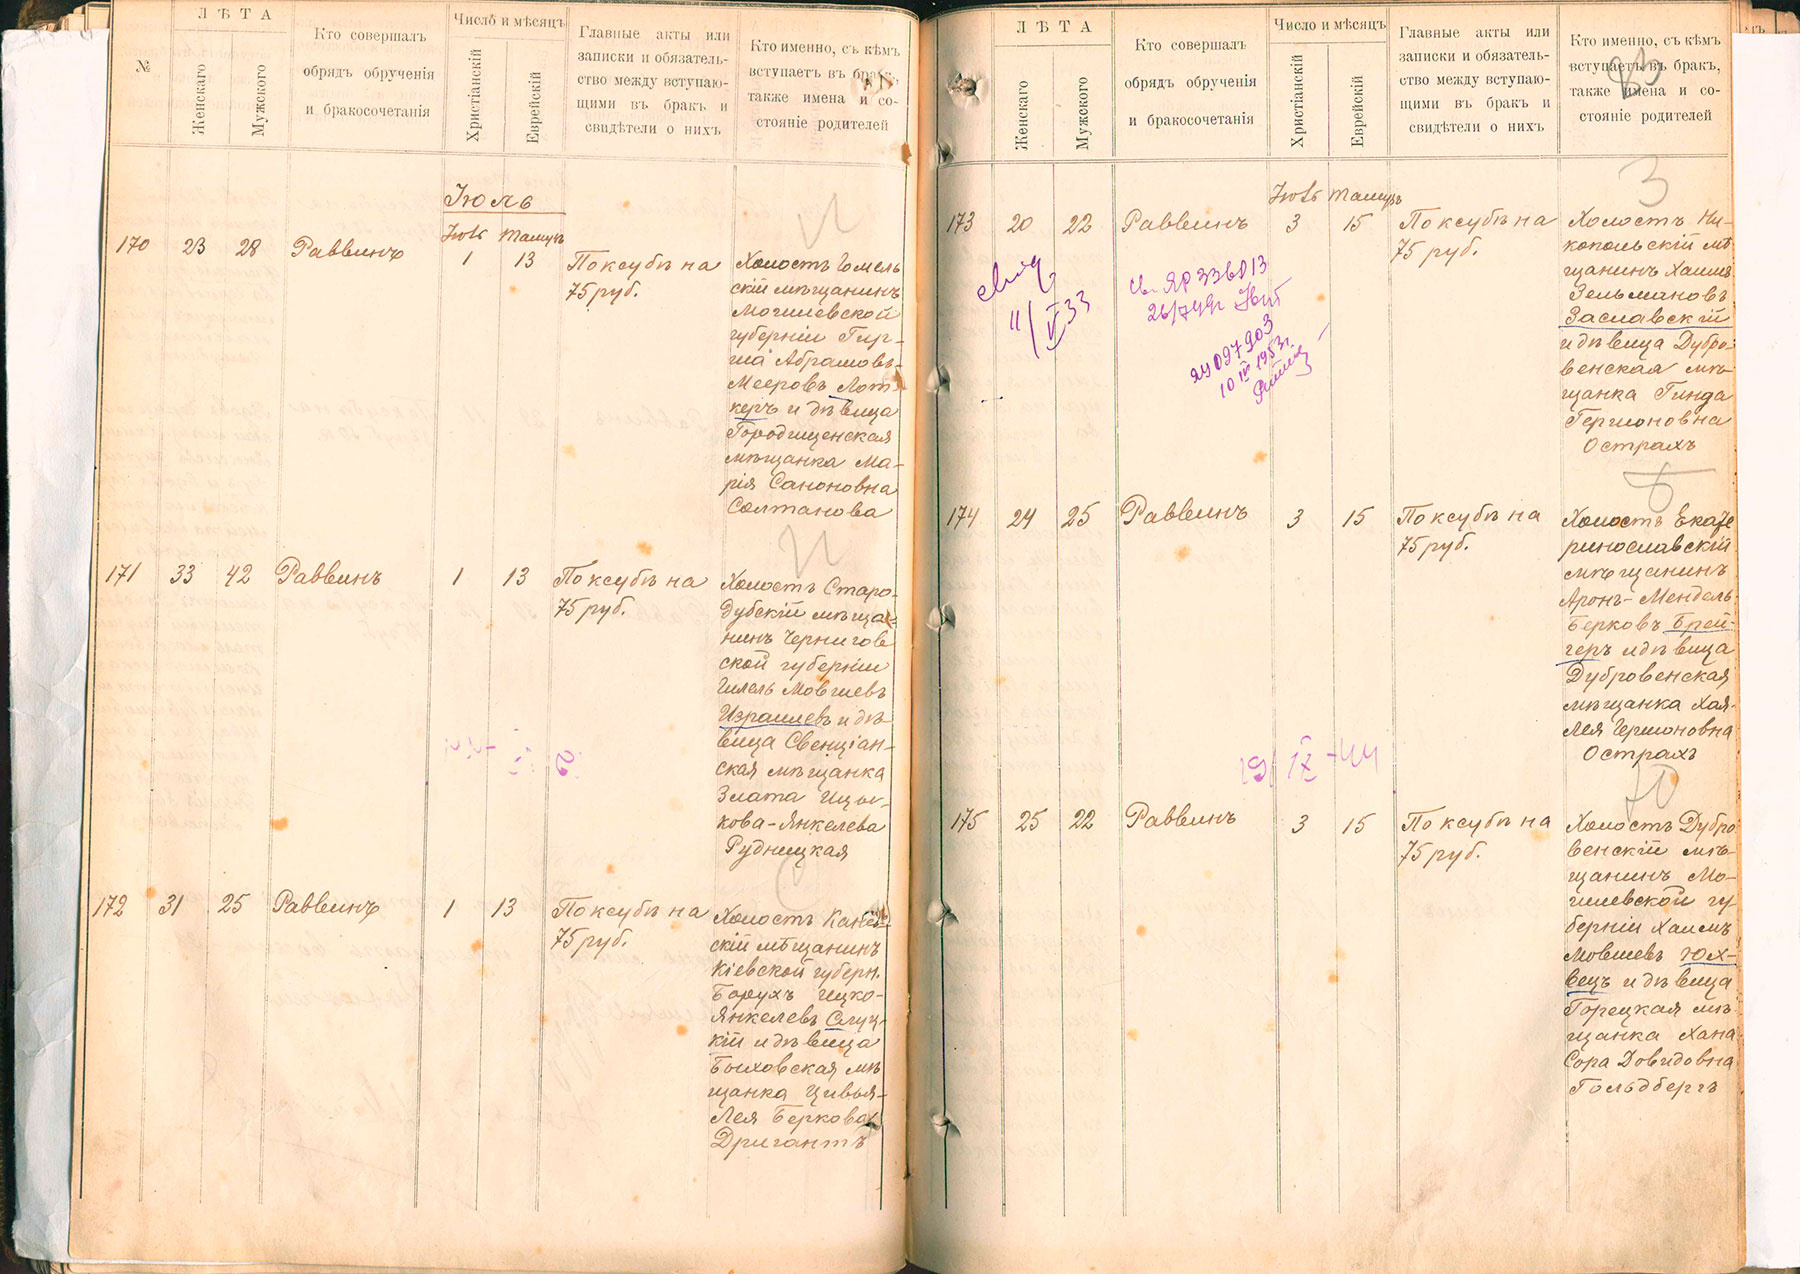 №
ЛѢТА
Женскаго
Мужского
Кто совершалъ
обрядъ обрученія
и бракосочетанія
Число и мѣсяцъ
Христіанскій
Еврейскій
Главные акты или
записки и обязатель-
ство между вступаю-
щими въ бракъ и
свидѣтели о нихъ
Кто именно, съ кѣмъ
вступаетъ въ бракъ,
также имена и со-
стояніе родителей
Іюль
Іюль Тамузъ
170 23 28 Раввинъ 1 13 По ксубѣ на
75 руб.
Холостъ Гомель
скій мѣщанинъ
Могилевской
губерніи Гир-
ша Абрамовъ-
Мееровъ Лот-
керъ и дѣвица
Городищенская
мѣщанка Ма-
рія Саноновна
Солтанова
171 33 42 Раввинъ 1 13 По ксубѣ на
75 руб.
Холостъ Старо-
дубскій мѣща-
нинъ Чернигов
ской губерніи
Гилель Мовшевъ
Израилевъ и дѣ-
вица Свенціан-
ская мѣщанка
Злата Ицы-
кова-Янкелева
Рудницкая
172 31 25 Раввинъ 1 13 По ксубѣ на
75 руб.
Холостъ Канев-
скій мѣщанинъ
Кіевской губерн.
Борухъ Ицко-
Янкелевъ Слуц-
кій и дѣвица
Быховская мѣ
щанка Цивья-
Лея Беркова
Дригантъ
ЛѢТА
Женскаго
Мужского
Кто совершалъ
обрядъ обрученія
и бракосочетанія
Число и мѣсяцъ
Христіанскій
Еврейскій
Главные акты или
записки и обязатель-
ство между вступаю-
щими въ бракъ и
свидѣтели о нихъ
Кто именно, съ кѣмъ
вступаетъ въ бракъ,
также имена и со-
стояніе родителей
83
З
Іюль Тамузъ
173 20 22 Раввинъ 3 15 По ксубѣ на
75 руб.
Холостъ Ни-
копольскій мѣ
щанинъ Хаимъ
Зельмановъ
Заславскій
и дѣвица Дубро-
венская мѣ-
щанка Гинда
Гершоновна
Острахъ
11/V 33
10 IV 1953г.
Б
174 24 25 Раввинъ 3 15 По ксубѣ на
75 руб.
Холостъ Екате
ринославскій
мѣщанинъ
Аронъ-Мендель-
Берковъ Брей-
геръ и дѣвица
Дубровенская
мѣщанка Хая-
Лея Гершоновна
Острахъ
19/IX-44
Ю
175 25 22 Раввинъ 3 15 По ксубѣ на
75 руб.
Холостъ Дубро
венскій мѣ-
щанинъ Мо-
гилевской гу-
берніи Хаимъ
Мовшевъ Юх-
вецъ и дѣвица
Горецкая мѣ-
щанка Хана
Сора Довидовна
Гольдбергъ